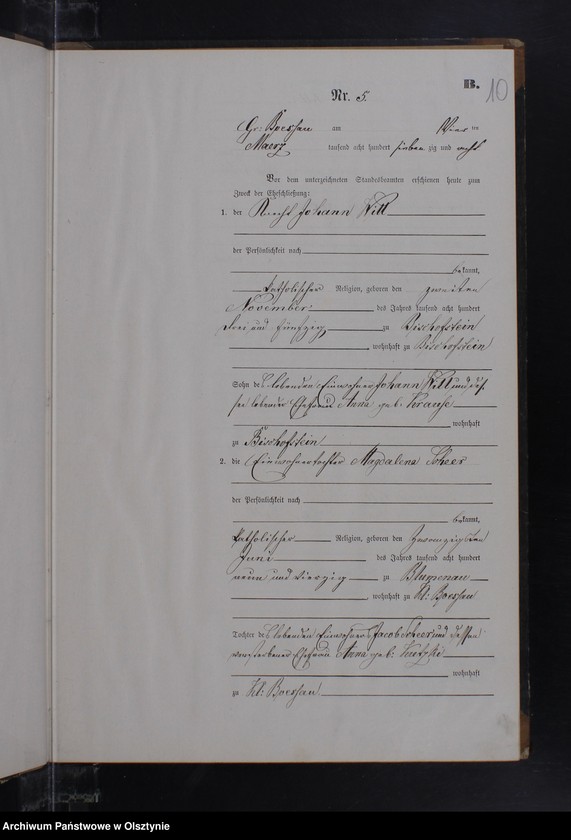 B.
10
Nr. 5.
Gr: Boessau am Vier ten
Maerz tausend acht hundert sieben zig und acht
Vor dem unterzeichneten Standesbeamten erschienen heute zum
Zweck der Eheschließung:
1. der Knecht Johann Will
der Persönlichkeit nach
bekannt,
katholischer Religion, geboren den zweiten
November des Jahres tausend acht hundert
drei und fünfzig zu Bischofstein
, wohnhaft zu Bischofstein
Sohn des lebenden Einwohners Johann Will und des
sen lebender Ehefrau Anna geb: Krause
wohnhaft
zu Bischofstein
2. die Einwohnertochter Magdalena Scheer
der Persönlichkeit nach
bekannt,
katholischer Religion, geboren den zwanzigsten
Juni des Jahres tausend acht hundert
neun und vierzig zu Blumenau
, wohnhaft zu Kl: Boessau
Tochter des lebenden Einwohners Jacob Scheer und dessen
verstorbener Ehefrau Anna geb:
wohnhaft
zu Kl: Boessau
Archiwum Państwowe w Olsztynie